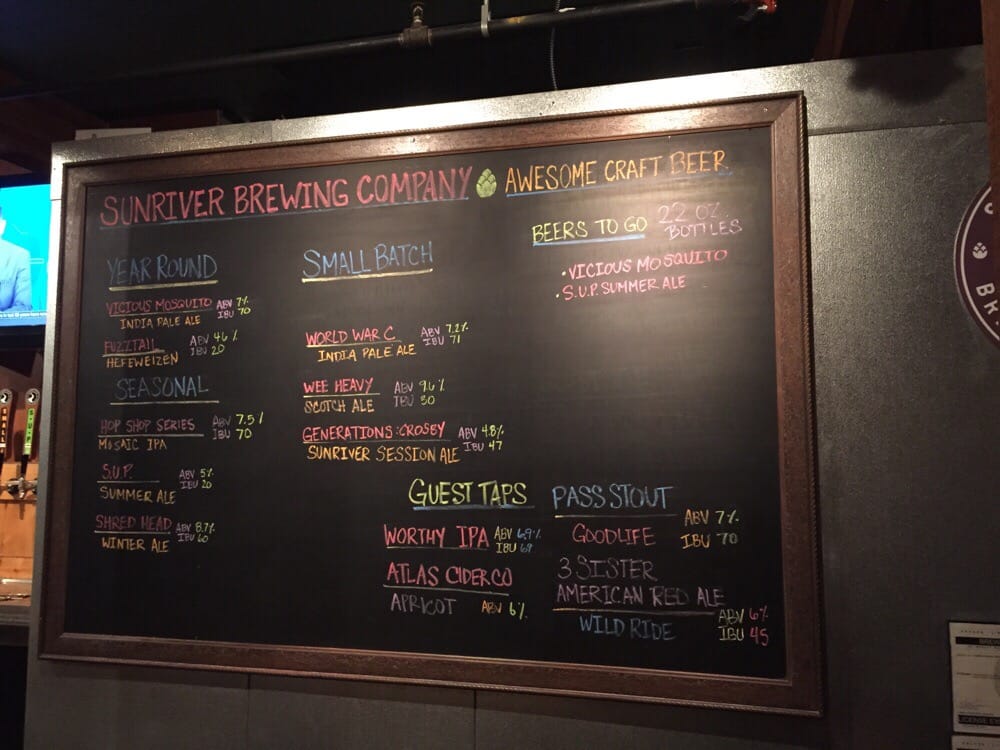 SUNRIVER BREWING COMPANY AWESOME CRAFT BEER
YEAR ROUND
VICIOUS MOSQUITO ABV 7%
INDIA PALE ALE IBU 70
FUZZTAIL ABV 4.6%
HEFEWEIZEN IBU 20
SEASONAL
HOP SHOP SERIES ABV 7.5%
MOSAIC IPA IBU 70
S.U.P. ABV 5%
SUMMER ALE IBU 20
SHRED HEAD ABV 8.7%
WINTER ALE IBU 60
SMALL BATCH
WORLD WAR C ABV 7.2%
INDIA PALE ALE IBU 71
WEE HEAVY ABV 9.6%
SCOTCH ALE IBU 30
GENERATIONS: CROSBY ABV 4.8%
SUNRIVER SESSION ALE IBU 47
BEERS TO GO 22 OZ
BOTTLES
• VICIOUS MOSQUITO
• S.U.P. SUMMER ALE
GUEST TAPS
WORTHY IPA ABV 6.9%
IBU 69
ATLAS CIDER CO
APRICOT ABV 6%
PASS STOUT ABV 7%
GOODLIFE IBU 70
3 SISTER
AMERICAN RED ALE ABV 6%
WILD RIDE IBU 45
S.U.P.
BR